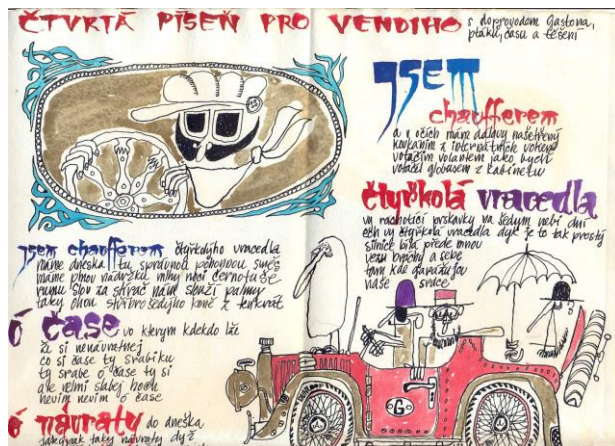 ČTVRTÁ PÍSEŇ PRO VENDIHO
s doprovodem Gastona,
ptáků, času a těšení
JSEM
chaufferem
a v očích mám dálavy našetřený
koukáním z internátních voken
votáčím volantem jako bych
votáčel globusem z kabinetu
čtyřkolá vracedla
vy rachotící prskavky na šedym nebi dní
ech vy čtyřkolá vracedla dyk je to tak prostý
silnice bílá přede mnou
vezu brachy a sebe
tam kde garážujou
vaše srdce
jsem chaufferem čtyřkolýho vracedla
máme dneska tu správnou pohonnou směs
máme plnou nádržku mlhy noci černotaše
rumu slov za stěrač nám slouží palmy
taky ohon stříbrošedýho koně z
ó čase vo kterym kdekdo lže
že si nenávratnej
co si čase ty srabíku
ty srabe ó čase ty si
ale velmi slabej hoch
nevím nevím ó čase
ó návraty do dneška
jakejpak taky návraty dyž
G